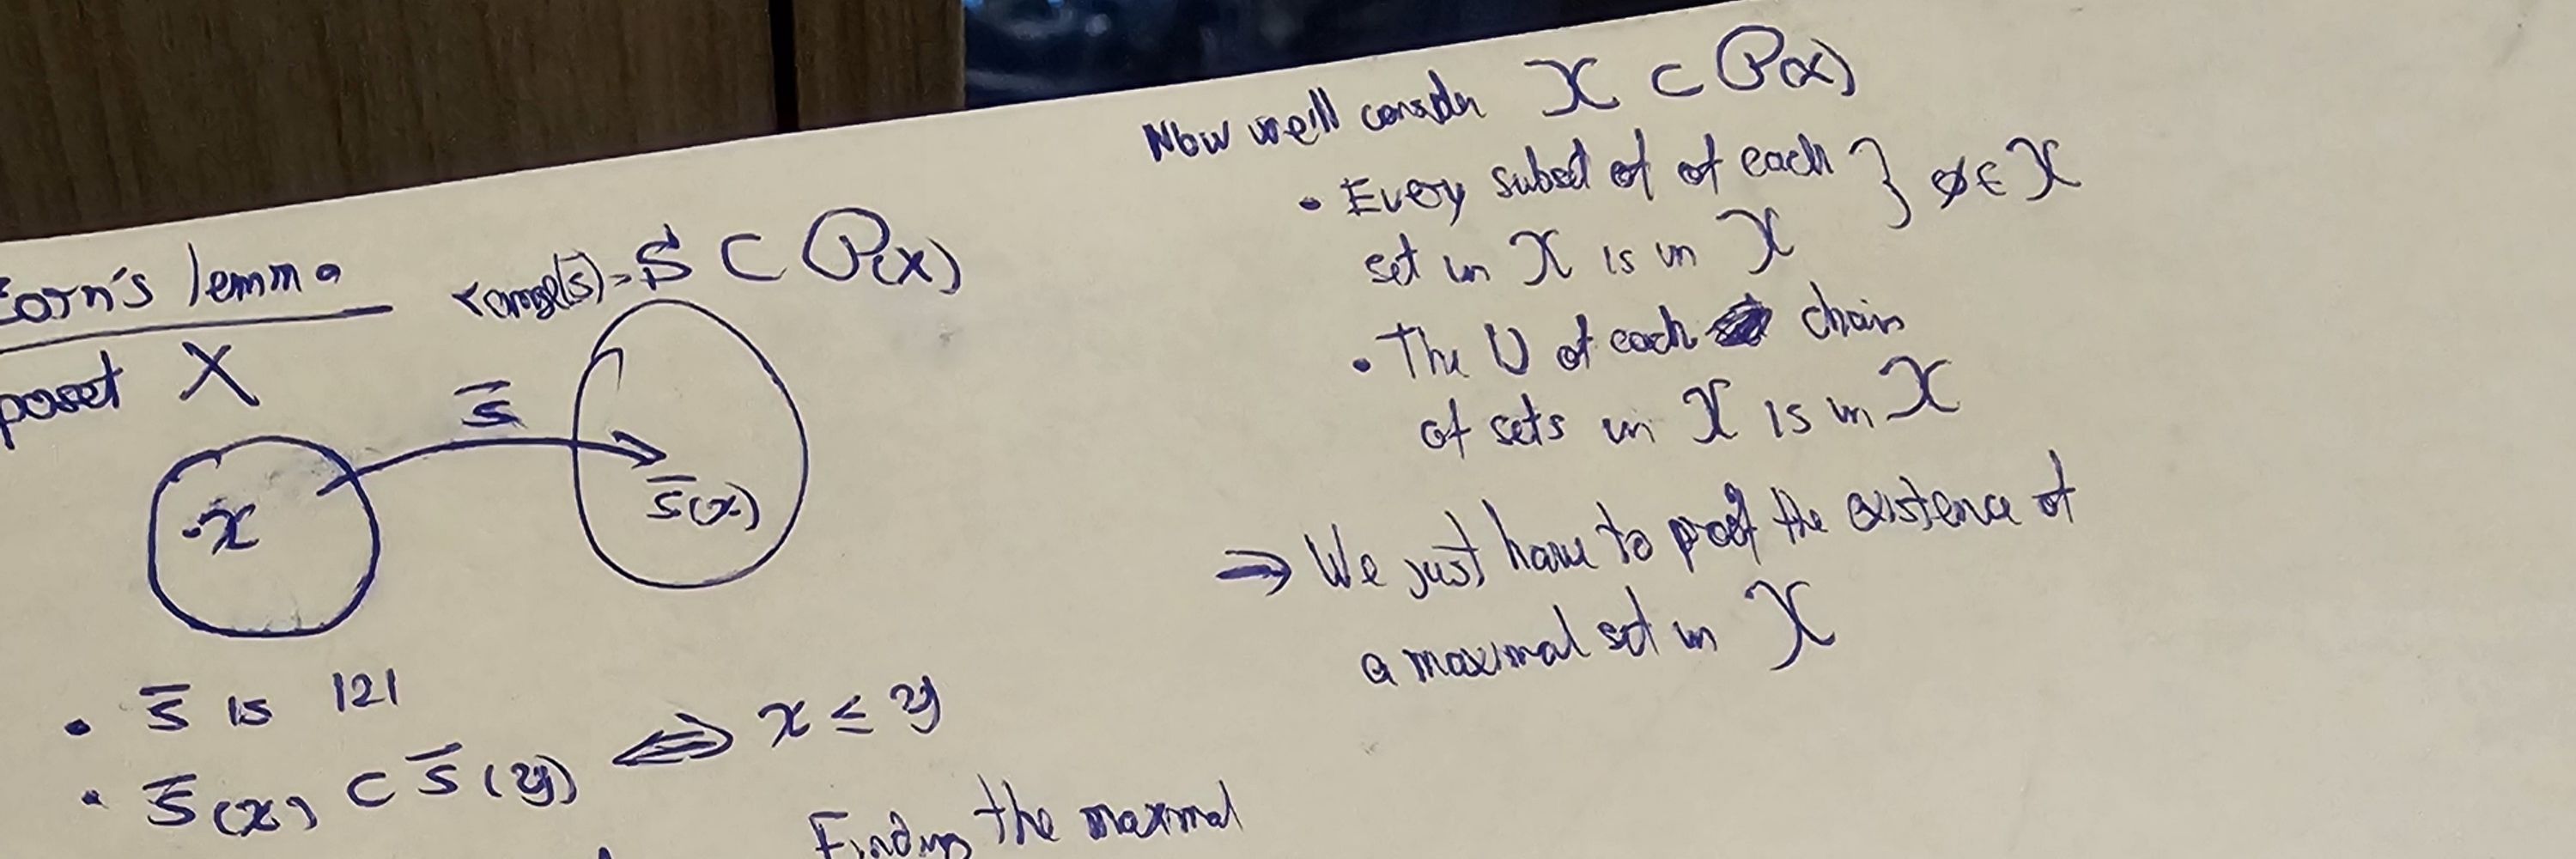 Zorn's lemma
range(s̄) = S ⊂ P(X)
poset X
s̄
x
s̄(x)
• s̄ is 121
• s̄(x) ⊂ s̄(y) ⟺ x ≤ y
Finding the maximal
Now we'll consider 𝒳 ⊂ P(X)
• Every subset of of each } ∅ ∈ 𝒳
set in 𝒳 is in 𝒳
• The U of each chain
of sets in 𝒳 is in 𝒳
⇒ We just have to proof the existence of
a maximal set in 𝒳